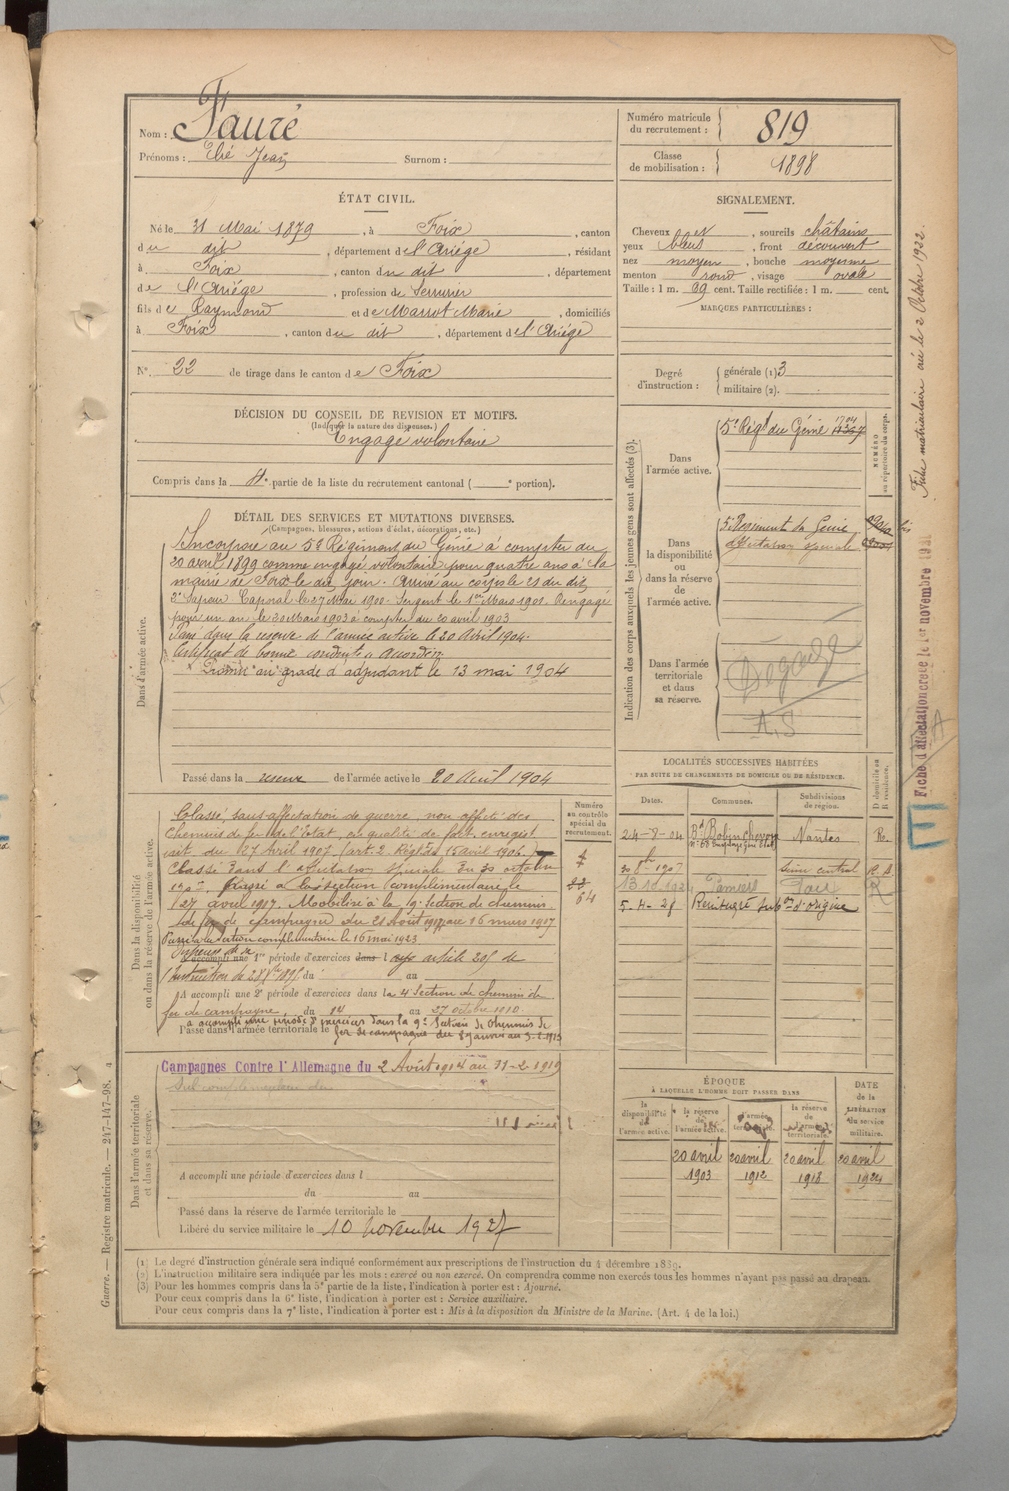 Nom : Fauré
Prénoms : Elié Jean Surnom :
Numéro matricule du recrutement : 819
Classe de mobilisation : 1898
ÉTAT CIVIL.
Né le 31 Mai 1879, à Foix, canton
du dit, département de l'Ariége, résidant
à Foix, canton du dit, département
de l'Ariége, profession de Serrurier
fils de Raymond et de Marrot Marie, domiciliés
à Foix, canton du dit, département de l'Ariége
N° 22 de tirage dans le canton de Foix
SIGNALEMENT.
Cheveux et, sourcils châtains
yeux bleus, front découvert
nez moyen, bouche moyenne
menton rond, visage ovale
Taille : 1 m. 69 cent. Taille rectifiée : 1 m. cent.
MARQUES PARTICULIÈRES :
Degré d'instruction : générale (1) 3
militaire (2).
DÉCISION DU CONSEIL DE REVISION ET MOTIFS.
(Indiquer la nature des dispenses.)
Engagé volontaire
Compris dans la 4e partie de la liste du recrutement cantonal ( e portion).
DÉTAIL DES SERVICES ET MUTATIONS DIVERSES.
(Campagnes, blessures, actions d'éclat, décorations, etc.)
Dans l'armée active.
Incorporé au 5e Régiment du Génie à compter du
20 avril 1899 comme engagé volontaire pour quatre ans à la
mairie de Foix le dit jour. Arrivé au corps le 21 du dit
2e Sapeur Caporal le 27 Mai 1900. Sergent le 1er Mars 1901. Rengagé
pour un an le 30 Mars 1903 à compter du 20 avril 1903
Passé dans la réserve de l'armée active le 20 Avril 1904.
Certificat de bonne conduite accordé.
Promu au grade d'adjudant le 13 mai 1904
Passé dans la réserve de l'armée active le 20 Avril 1904
Indication des corps auxquels les jeunes gens sont affectés (3).
NUMÉRO au répertoire du corps.
Dans l'armée active.
5e Régt du Génie
Dans la disponibilité ou dans la réserve de l'armée active.
5e Régiment du Génie
Affectation spéciale
Dans l'armée territoriale et dans sa réserve.
Dégagé
A.S
Fiche matriculaire créée le 2 Octobre 1922.
Fiche d'affectation créée le 1er novembre
LOCALITÉS SUCCESSIVES HABITÉES
PAR SUITE DE CHANGEMENTS DE DOMICILE OU DE RÉSIDENCE.
Dates. Communes. Subdivisions de région. D domicile ou R résidence.
24-8-04 Nantes R.
1907 Seine central
13.10.192 Pamiers
5-4-28 Restitué sub on d'origine
Dans la disponibilité ou dans la réserve de l'armée active.
Numéro au contrôle spécial du recrutement.
64
Classé, sans affectation de guerre, non affecté des
Chemins de fer de l'Etat, en qualité de
du 27 Avril 1907 (art. 2. Règt du 15 avril 1906.)
Classé dans l'affectation spéciale du 30 octobre
1907. Passé à la section complémentaire le
27 avril 1917. Mobilisé à la 9e Section de chemins
de fer de campagne du 21 Août 1917 au 16 mars 1917
Passé à la section complémentaire le 16 mai 1923
Dispensé de sa
A accompli une 1re période d'exercices dans l article 205 de
l'Instruction du au
A accompli une 2e période d'exercices dans la 4e Section de chemin de
fer de campagne, du 14 au 27 octobre 1910.
a accompli une période d'exercices dans la 9e Section de Chemins de
Passé dans l'armée territoriale le fer de campagne
Dans l'armée territoriale et dans sa réserve.
Campagnes Contre l'Allemagne du 2 Août 1914 au 11-2-1919
A accompli une période d'exercices dans l
du au
Passé dans la réserve de l'armée territoriale le
Libéré du service militaire le 10 novembre 1927
ÉPOQUE
À LAQUELLE L'HOMME DOIT PASSER DANS
DATE de la LIBÉRATION du service militaire.
la disponibilité de l'armée active. la réserve de l'armée active. l'armée territoriale. la réserve de l'armée territoriale.
20 avril 1903 20 avril 1912 20 avril 1918 20 avril 1924
(1) Le degré d'instruction générale sera indiqué conformément aux prescriptions de l'instruction du 4 décembre 1889.
(2) L'instruction militaire sera indiquée par les mots : exercé ou non exercé. On comprendra comme non exercés tous les hommes n'ayant pas passé au drapeau.
(3) Pour les hommes compris dans la 5e partie de la liste, l'indication à porter est : Ajourné.
Pour ceux compris dans la 6e liste, l'indication à porter est : Service auxiliaire.
Pour ceux compris dans la 7e liste, l'indication à porter est : Mis à la disposition du Ministre de la Marine. (Art. 4 de la loi.)
Guerre. — Registre matricule. — 247-147-98.